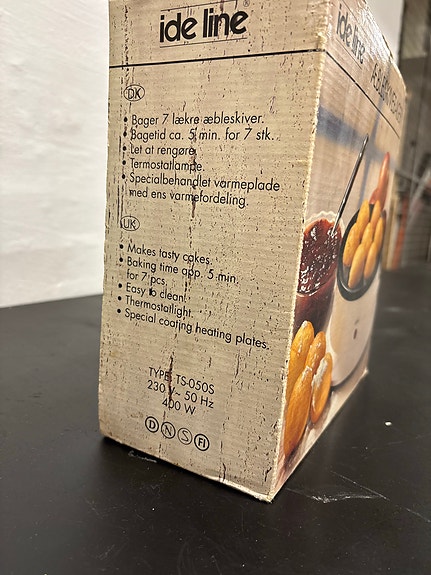 ide line®
ide line
DK
• Bager 7 lækre æbleskiver.
• Bagetid ca. 5 min. for 7 stk.
• Let at rengøre.
• Termostatlampe.
• Specialbehandlet varmeplade
med ens varmefordeling.
UK
• Makes tasty cakes.
• Baking time app. 5 min.
for 7 pcs.
• Easy to clean.
• Thermostatlight.
• Special coating heating plates.
TYPE TS-050S
230 V~ 50 Hz
400 W
D N S FI